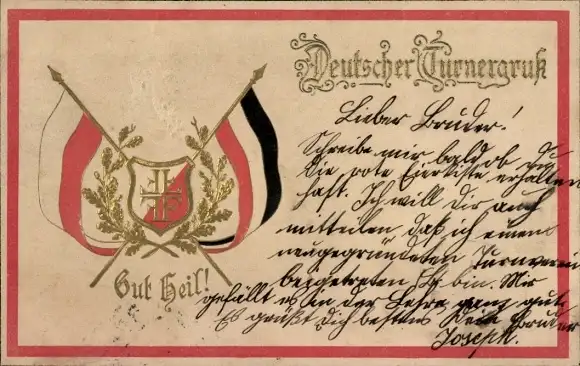 Deutscher Turnergruß
Lieber Bruder!
Schreibe mir bald ob Du
die rote Eierkiste erhalten
hast. Ich will Dir auch
mitteilen, daß ich einem
neugegründeten Turnverein
beigetreten bin. Mir
gefällt es in der Lehre ganz gut.
Es grüßt Dich bestens Dein Bruder
Joseph.
Gut Heil!